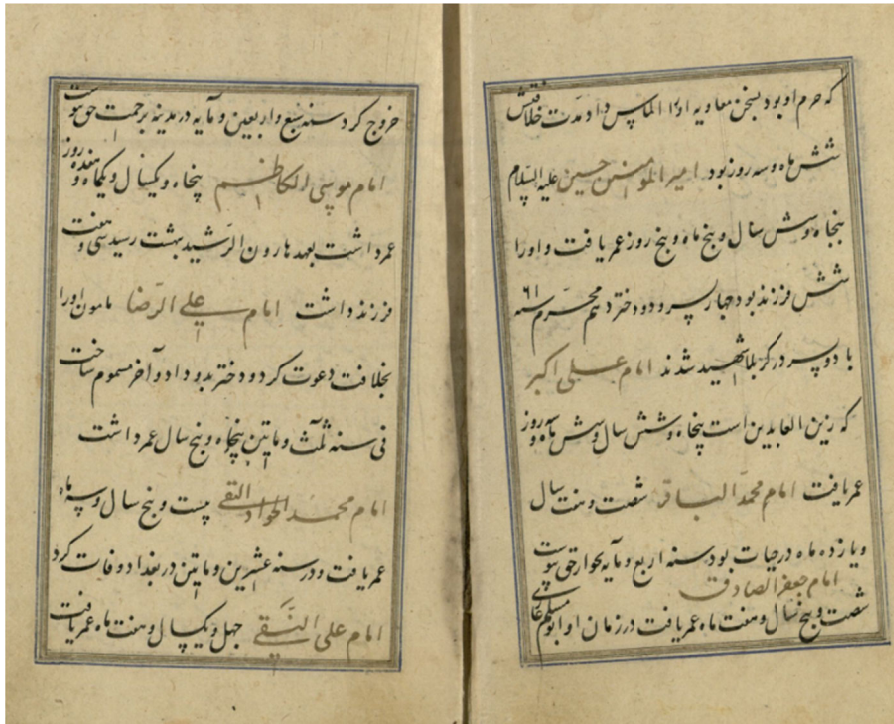 که حرم او بود بسخن معاویه او را الماس داد و مدت خلافتش
شش ماه و سه روز بود امیر المؤمنین حسین علیه السلام
پنجاه و شش سال و پنج ماه و پنج روز عمر یافت و اورا
شش فرزند بود چهار پسر و دو دختر دهم محرم سنه ۶۱
با دو پسر در کربلا شهید شدند امام علی اکبر
که زین العابدین است پنجاه و شش سال و شش ماه و سه روز
عمر یافت امام محمد الباقر شصت و هفت سال
و یازده ماه در حیات بود سنه اربع و مایه بجوار حق پیوست
امام جعفر الصادق
شصت و پنج سال و هفت ماه عمر یافت در زمان او ابو مسلم غازی
خروج کرد سنه سبع و اربعین و مایه در مدینه برحمت حق پیوست
امام موسی الکاظم پنجاه و یکسال و یکماه و هفده روز
عمر داشت بعهد هارون الرشید بهشت رسید سی و هفت
فرزند داشت امام علی الرضا مامون اورا
بخلافت دعوت کرد و دختر بدو داد و آخر مسموم ساخت
فی سنه ثلث و مایتن پنجاه و پنج سال عمر داشت
امام محمد الجواد التقی بیست و پنج سال و سه ماه
عمر یافت و در سنه عشرین و مایتن در بغداد وفات کرد
امام علی النقی چهل و یکسال و هفت ماه عمر یافت